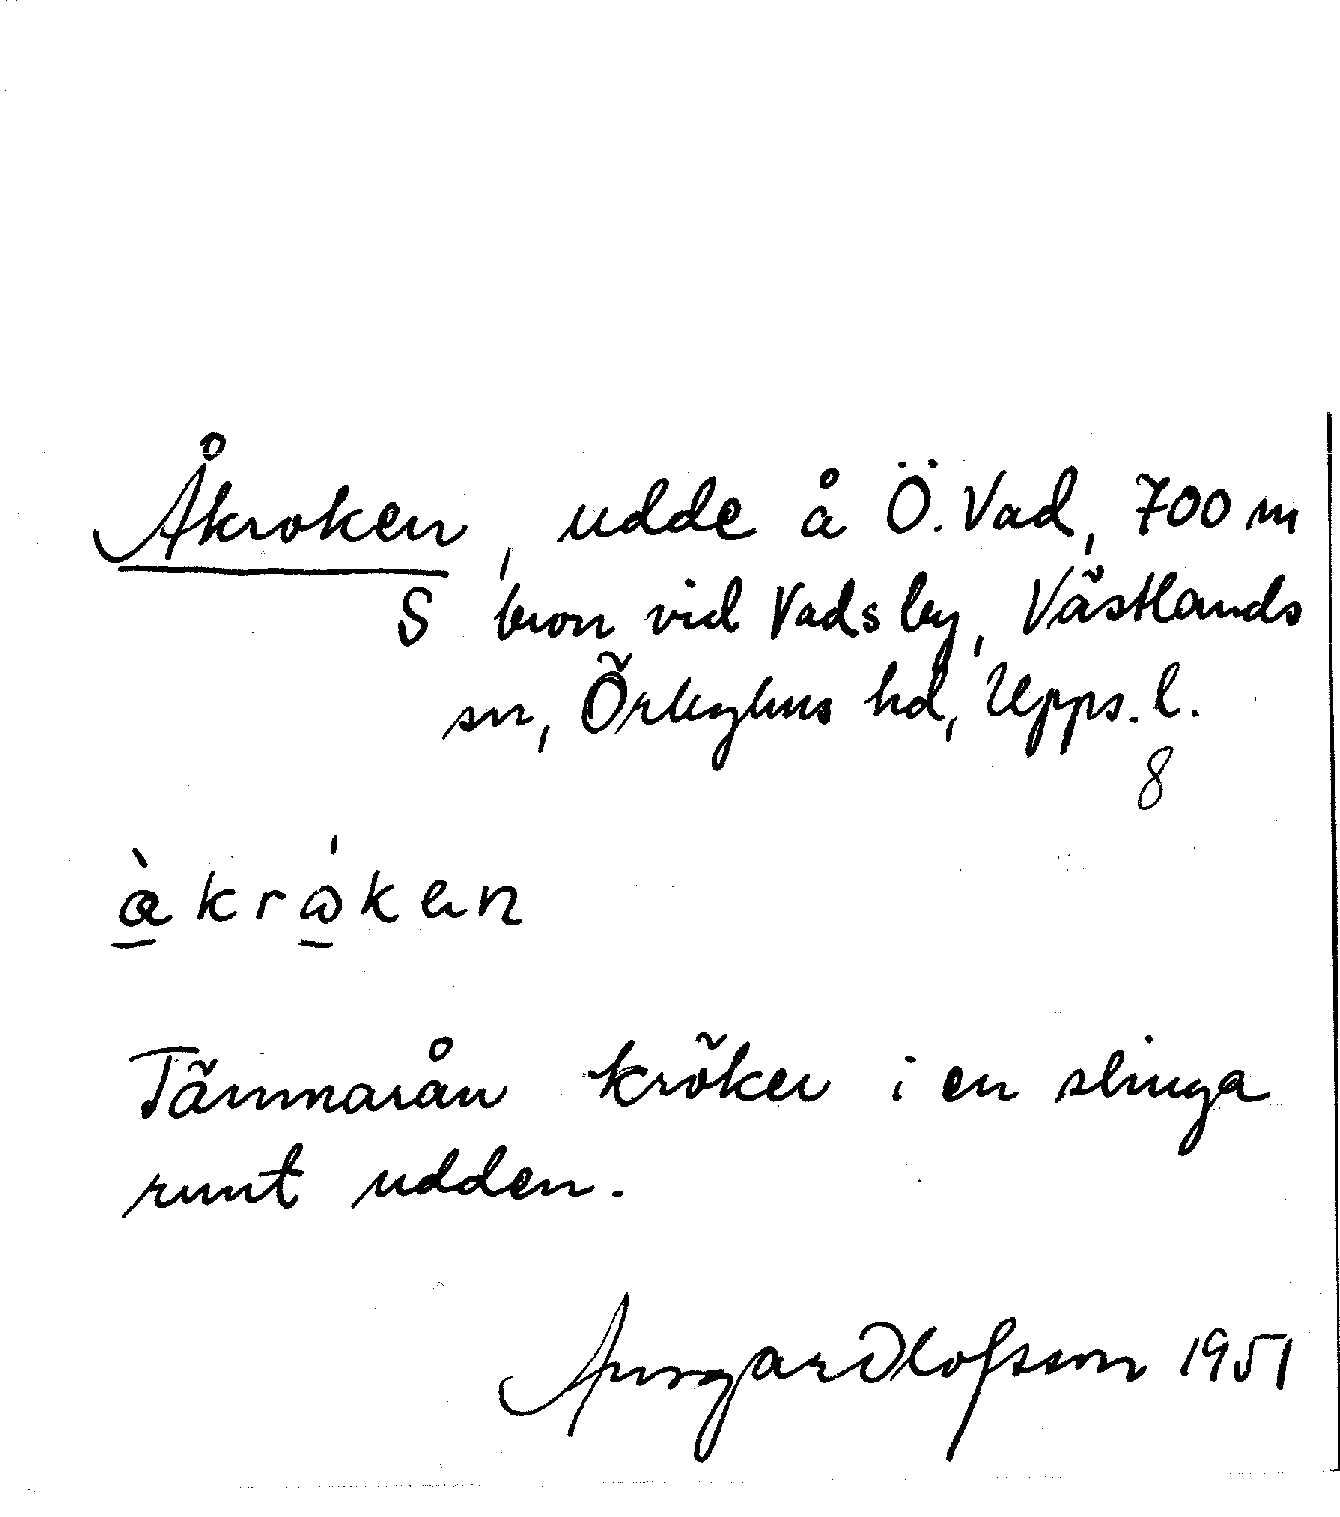 Åkroken, udde å Ö. Vad, 700 m
S bron vid Vads by, Västlands
sn, Örbyhus hd, Upps. l.
8
å̀ krǻken
Tämnarån kröker i en slinga
runt udden.
Ansgar Olofsson 1951